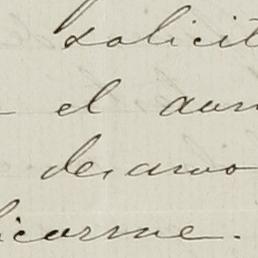 solicit
el aum
desarro
licarme.